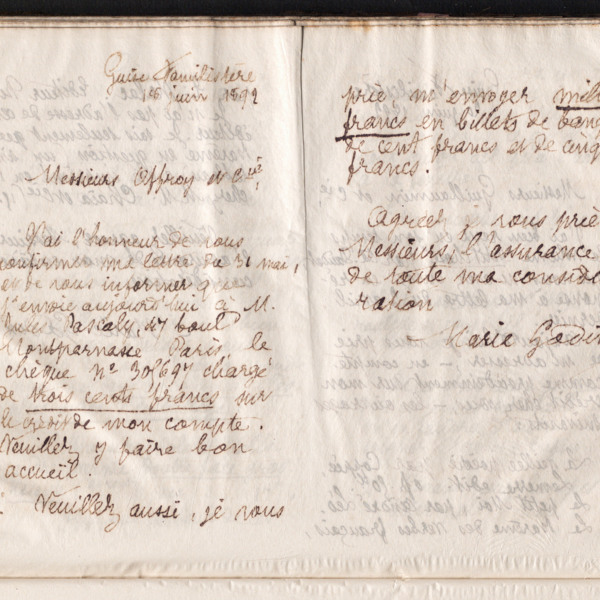 Guise Familistère
16 juin 1892
Messieurs Offroy et Cie,
J'ai l'honneur de vous
confirmer ma lettre du 31 mai,
et de vous informer que
j'envoie aujourd'hui à M.
Jules Pascaly, 37 boul
Montparnasse Paris, le
chèque No 307697 chargé
de trois cents francs sur
le crédit de mon compte.
Veuillez y faire bon
accueil.
Veuillez aussi, je vous
prie m'envoyer
francs en billets de
de cent francs et de
francs.
Agréez, je vous prie
Messieurs, l'assurance
de toute ma considé
ration
Marie Godin